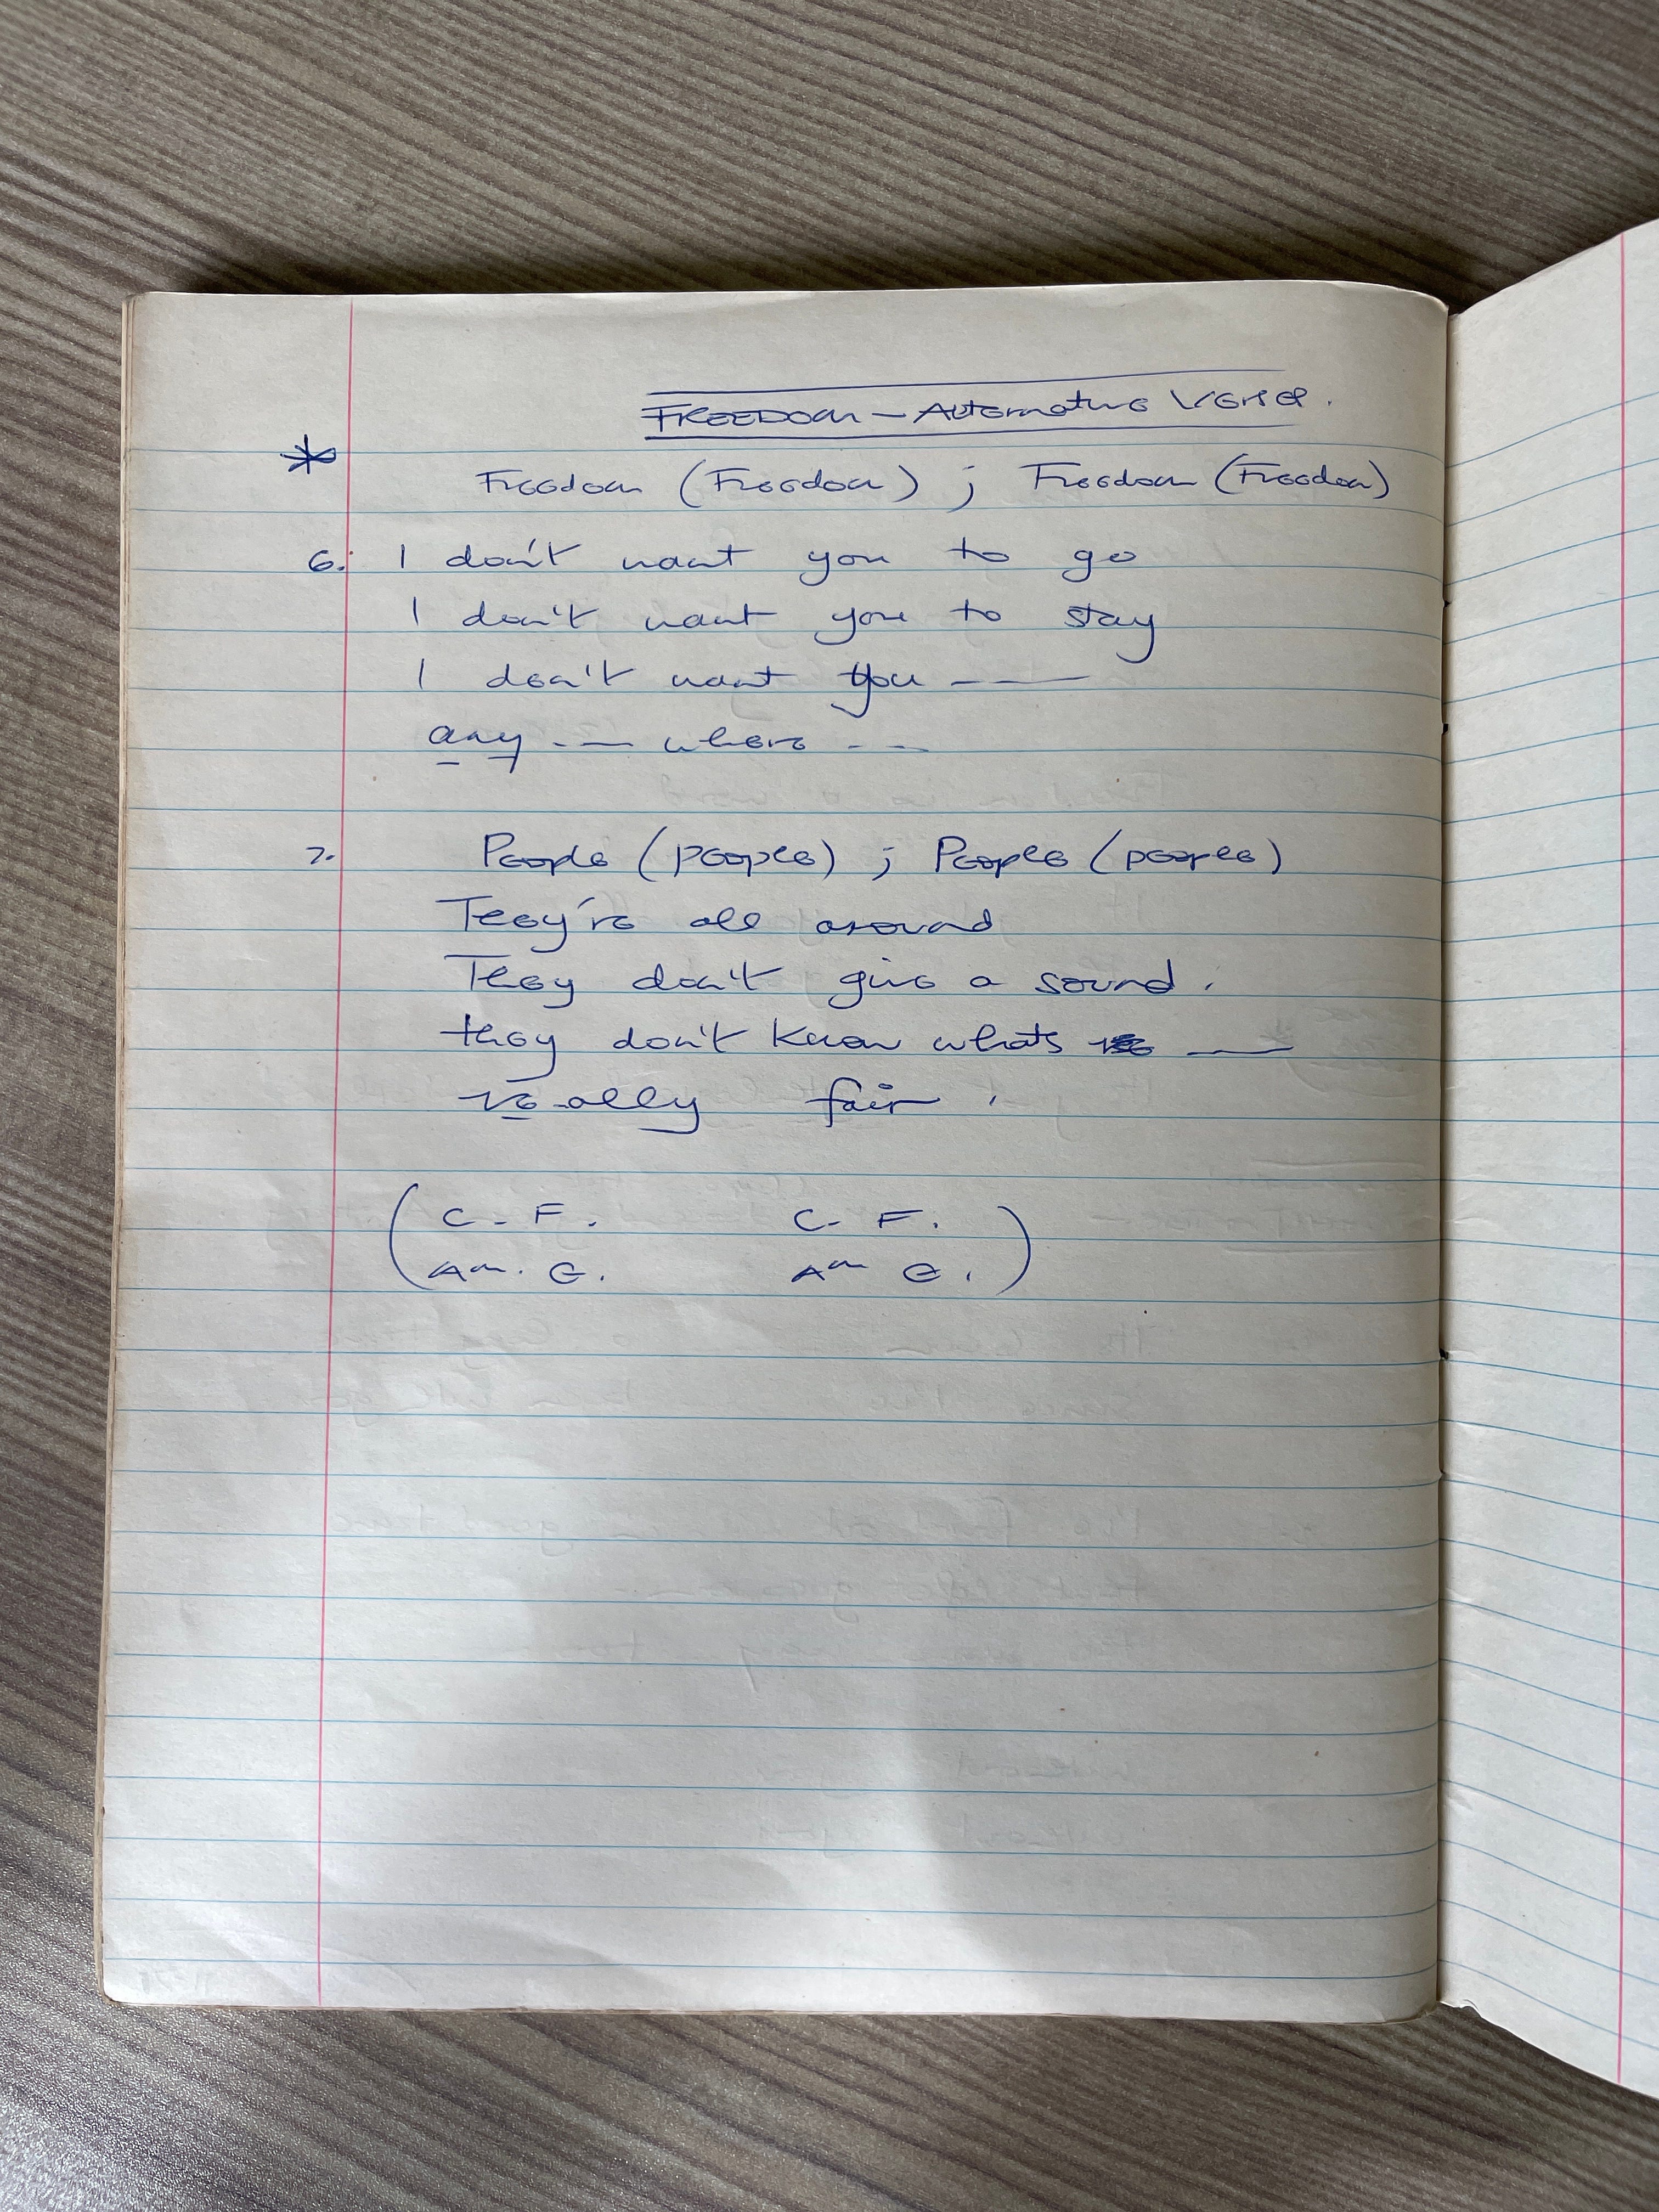 FREEDOM - Alternative Verse.
* Freedom (Freedom) ; Freedom (Freedom)
6. I don't want you to go
I don't want you to stay
I don't want you ——
any -— where - —
7. People (people) ; People (people)
They're all around
They don't give a sound.
they don't know whats re ——
re-ally fair.
( C - F. C - F. )
Am. G. Am G.